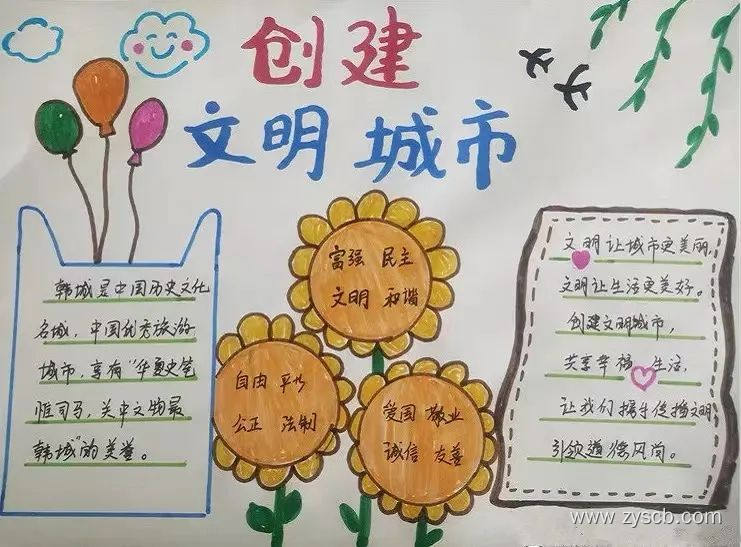 创建
文明城市
韩城是中国历史文化
名城，中国优秀旅游
城市，享有“华夏史笔
惟司马，关中文物最
韩城”的美誉。
富强 民主
文明 和谐
自由 平等
公正 法制
爱国 敬业
诚信 友善
文明让城市更美丽，
文明让生活更美好。
创建文明城市，
共享幸福生活，
让我们携手传播文明
引领道德风尚。
www.zyscb.com